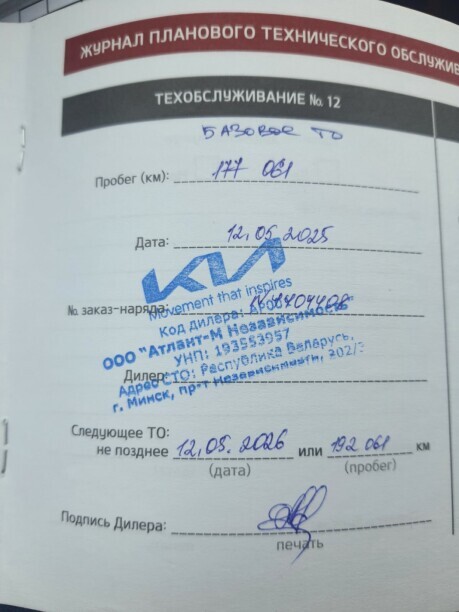 ЖУРНАЛ ПЛАНОВОГО ТЕХНИЧЕСКОГО ОБСЛУЖИВ
ТЕХОБСЛУЖИВАНИЕ № 12
БАЗОВОЕ ТО
Пробег (км): 177 061
Дата: 12.05.2025
KIA
Movement that inspires
№ заказ-наряда:
Код дилера:
ООО "Атлант-М Независимость"
УНП: 193553957
Дилер:
Адрес СТО: Республика Беларусь,
г. Минск, пр-т Независимости, 202/3
Следующее ТО:
не позднее 12.05.2026 или 192 061 км
(дата) (пробег)
Подпись Дилера:
печать